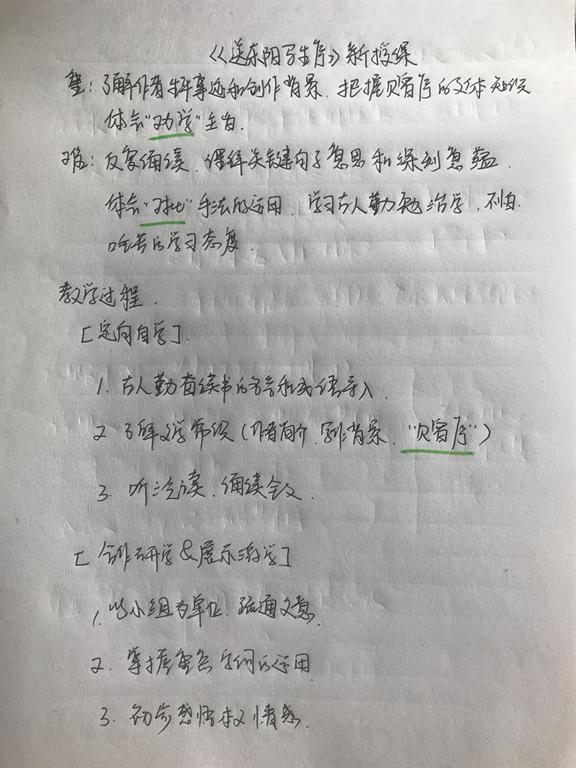 《送东阳马生序》新授课
重:了解作者生平事迹和创作背景.把握赠序的文体知识
体会"劝学"主旨.
难:反复诵读,理解关键句子意思和深刻意蕴.
体会"对比"手法的运用.学习古人勤勉治学,不怕
吃苦的学习态度.
教学过程.
[定向自学].
1.古人勤奋读书的名言和成语导入.
2.了解文学常识(作者简介.写作背景."赠序")
3.听泛读.诵读全文.
[合作研学&展示激学]
1.以小组为单位.疏通文意.
2.掌握重点字词的运用.
3.初步感悟本文情感.